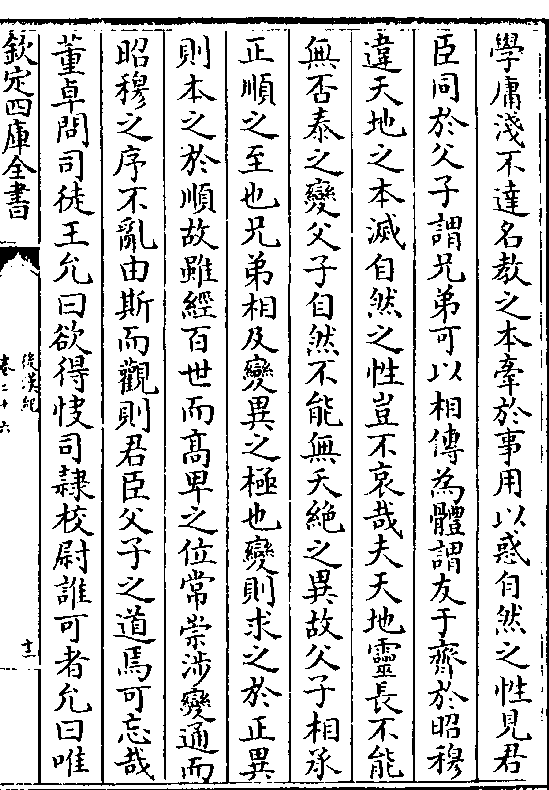 學庸淺不達名教之本牽於事用以惑自然之性見君
臣同於父子謂兄弟可以相傳為體謂友于齊於昭穆
違天地之本滅自然之性豈不哀哉夫天地靈長不能
無否泰之變父子自然不能無夭絶之異故父子相承
正順之至也兄弟相及變異之極也變則求之於正異
則本之於順故雖經百世而髙卑之位常崇涉變通而
昭穆之序不亂由斯而觀則君臣父子之道焉可忘哉
董卓問司徒王允曰欲得快司隷校尉誰可者允曰唯
欽定四庫全書
後漢紀
卷二十六
十三